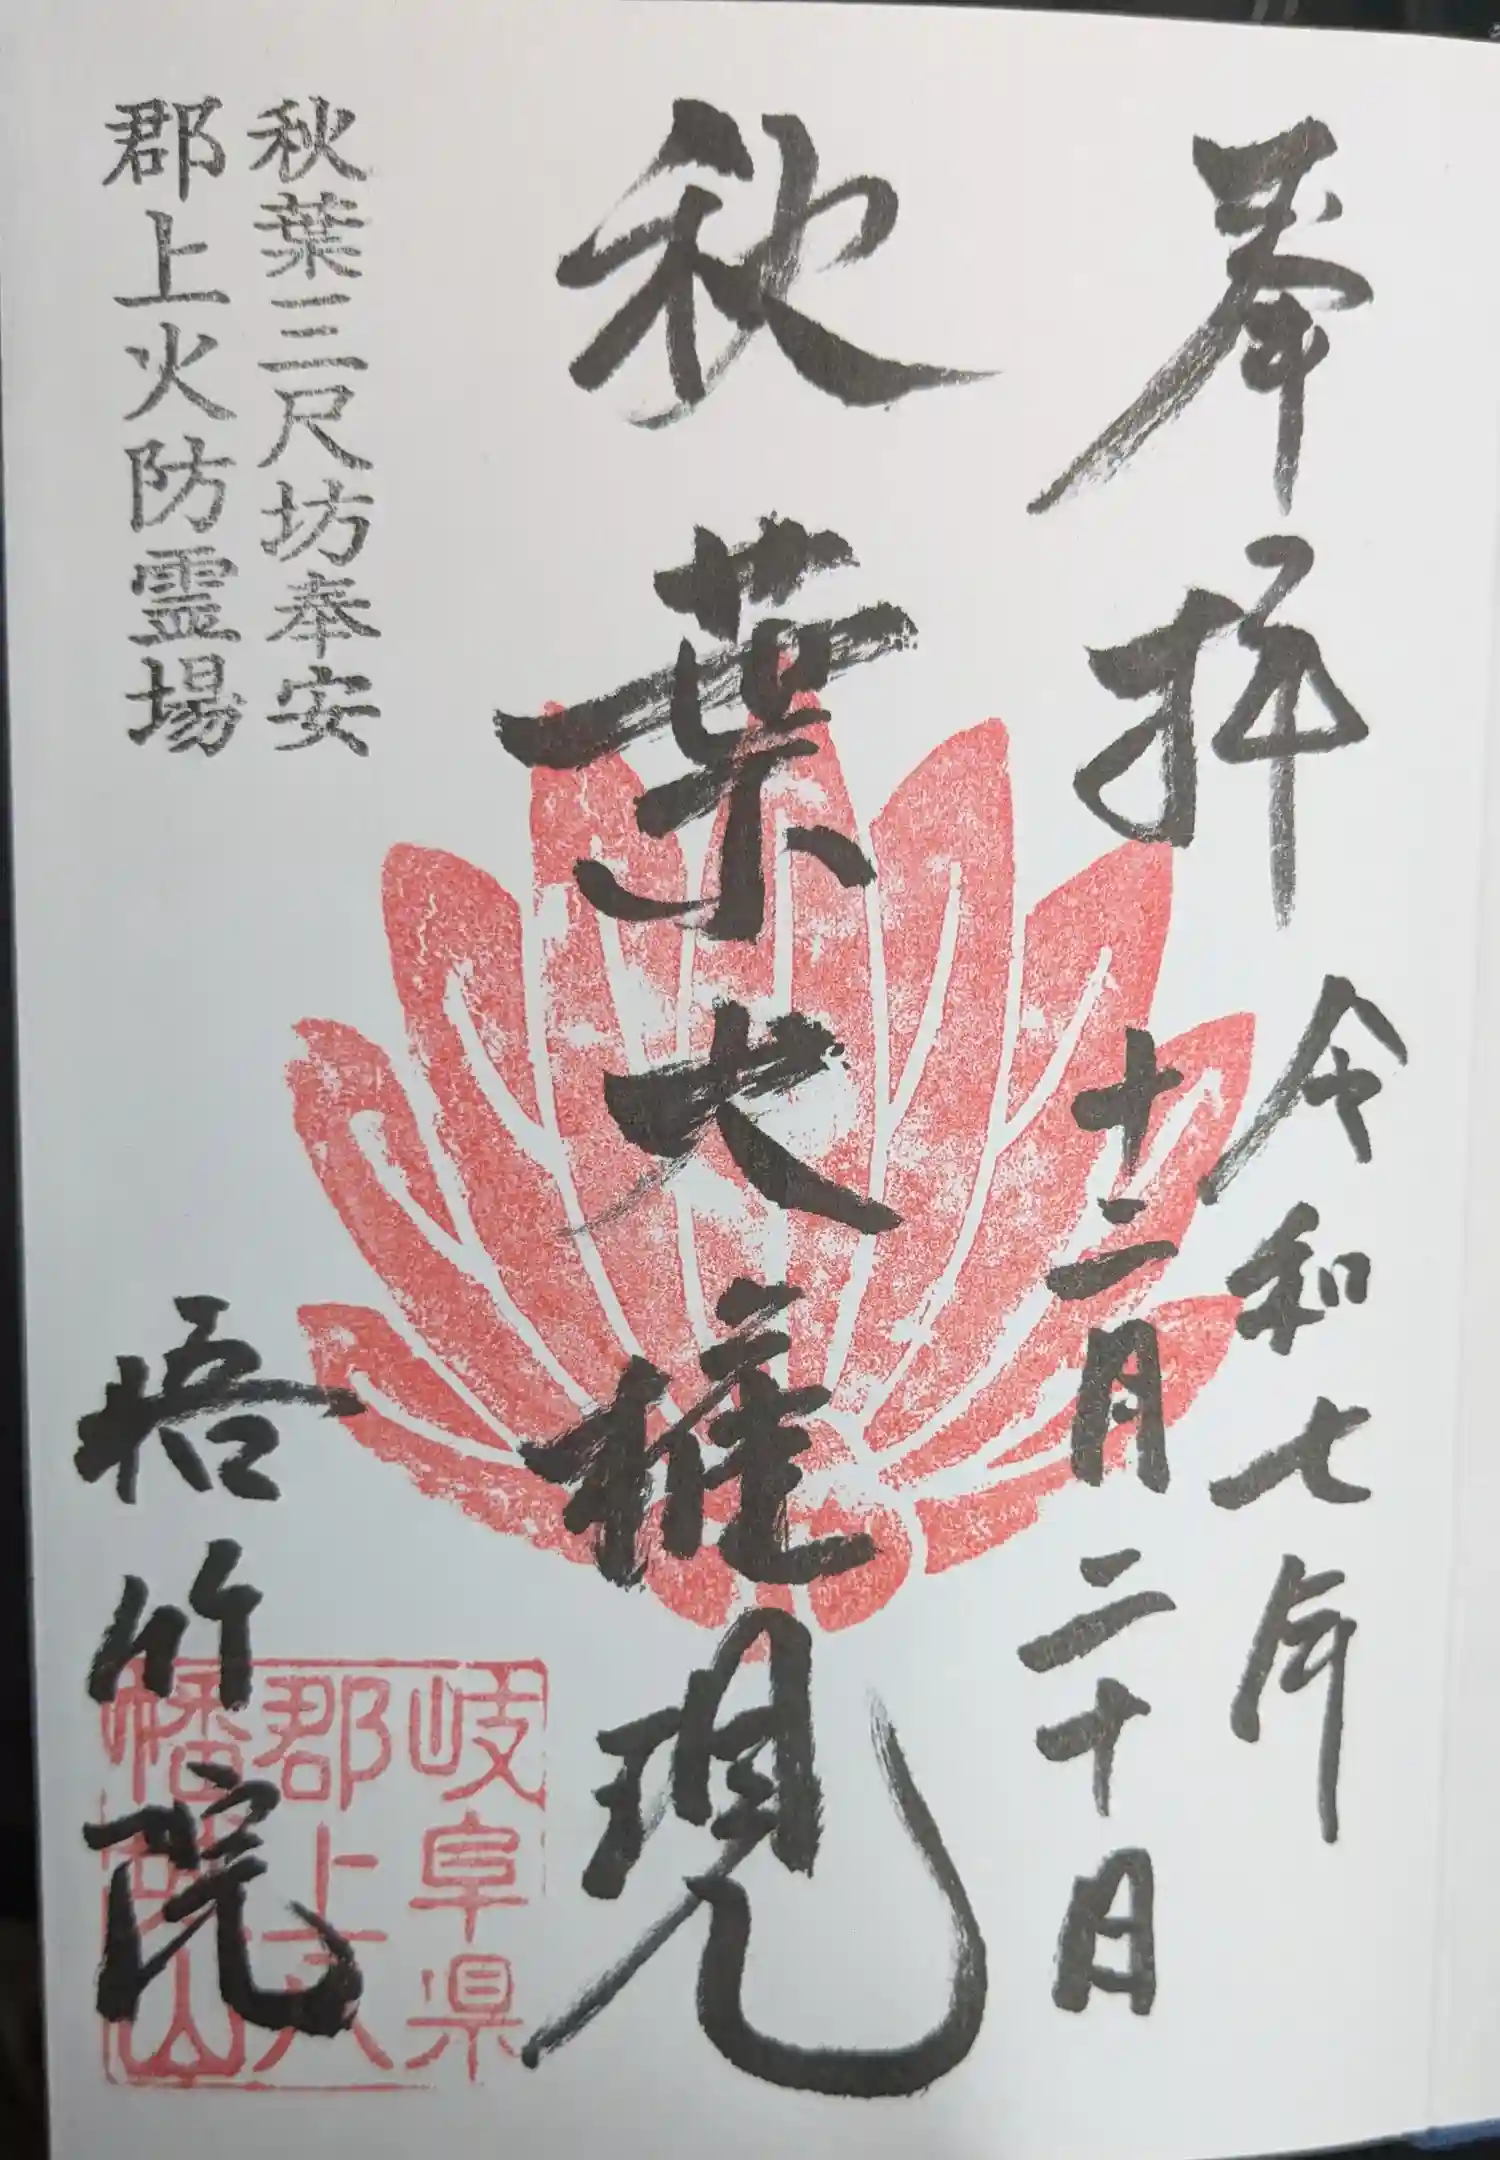 奉拝
令和七年
十二月二十日
秋葉大権現
秋葉三尺坊奉安
郡上火防霊場
悟竹院
岐阜県
郡上八
幡
山